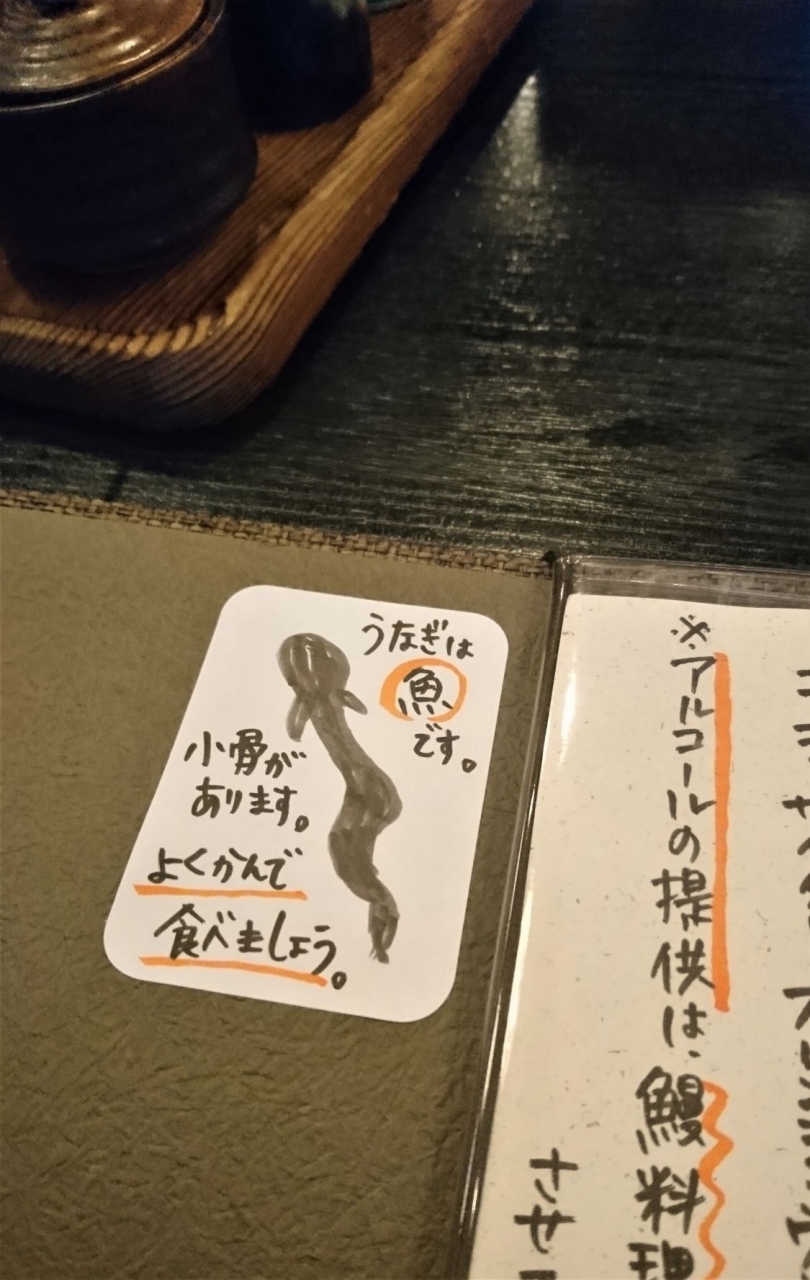 うなぎは
魚
です。
小骨が
あります。
よくかんで
食べましょう。
※アルコールの提供は、鰻料理
させ